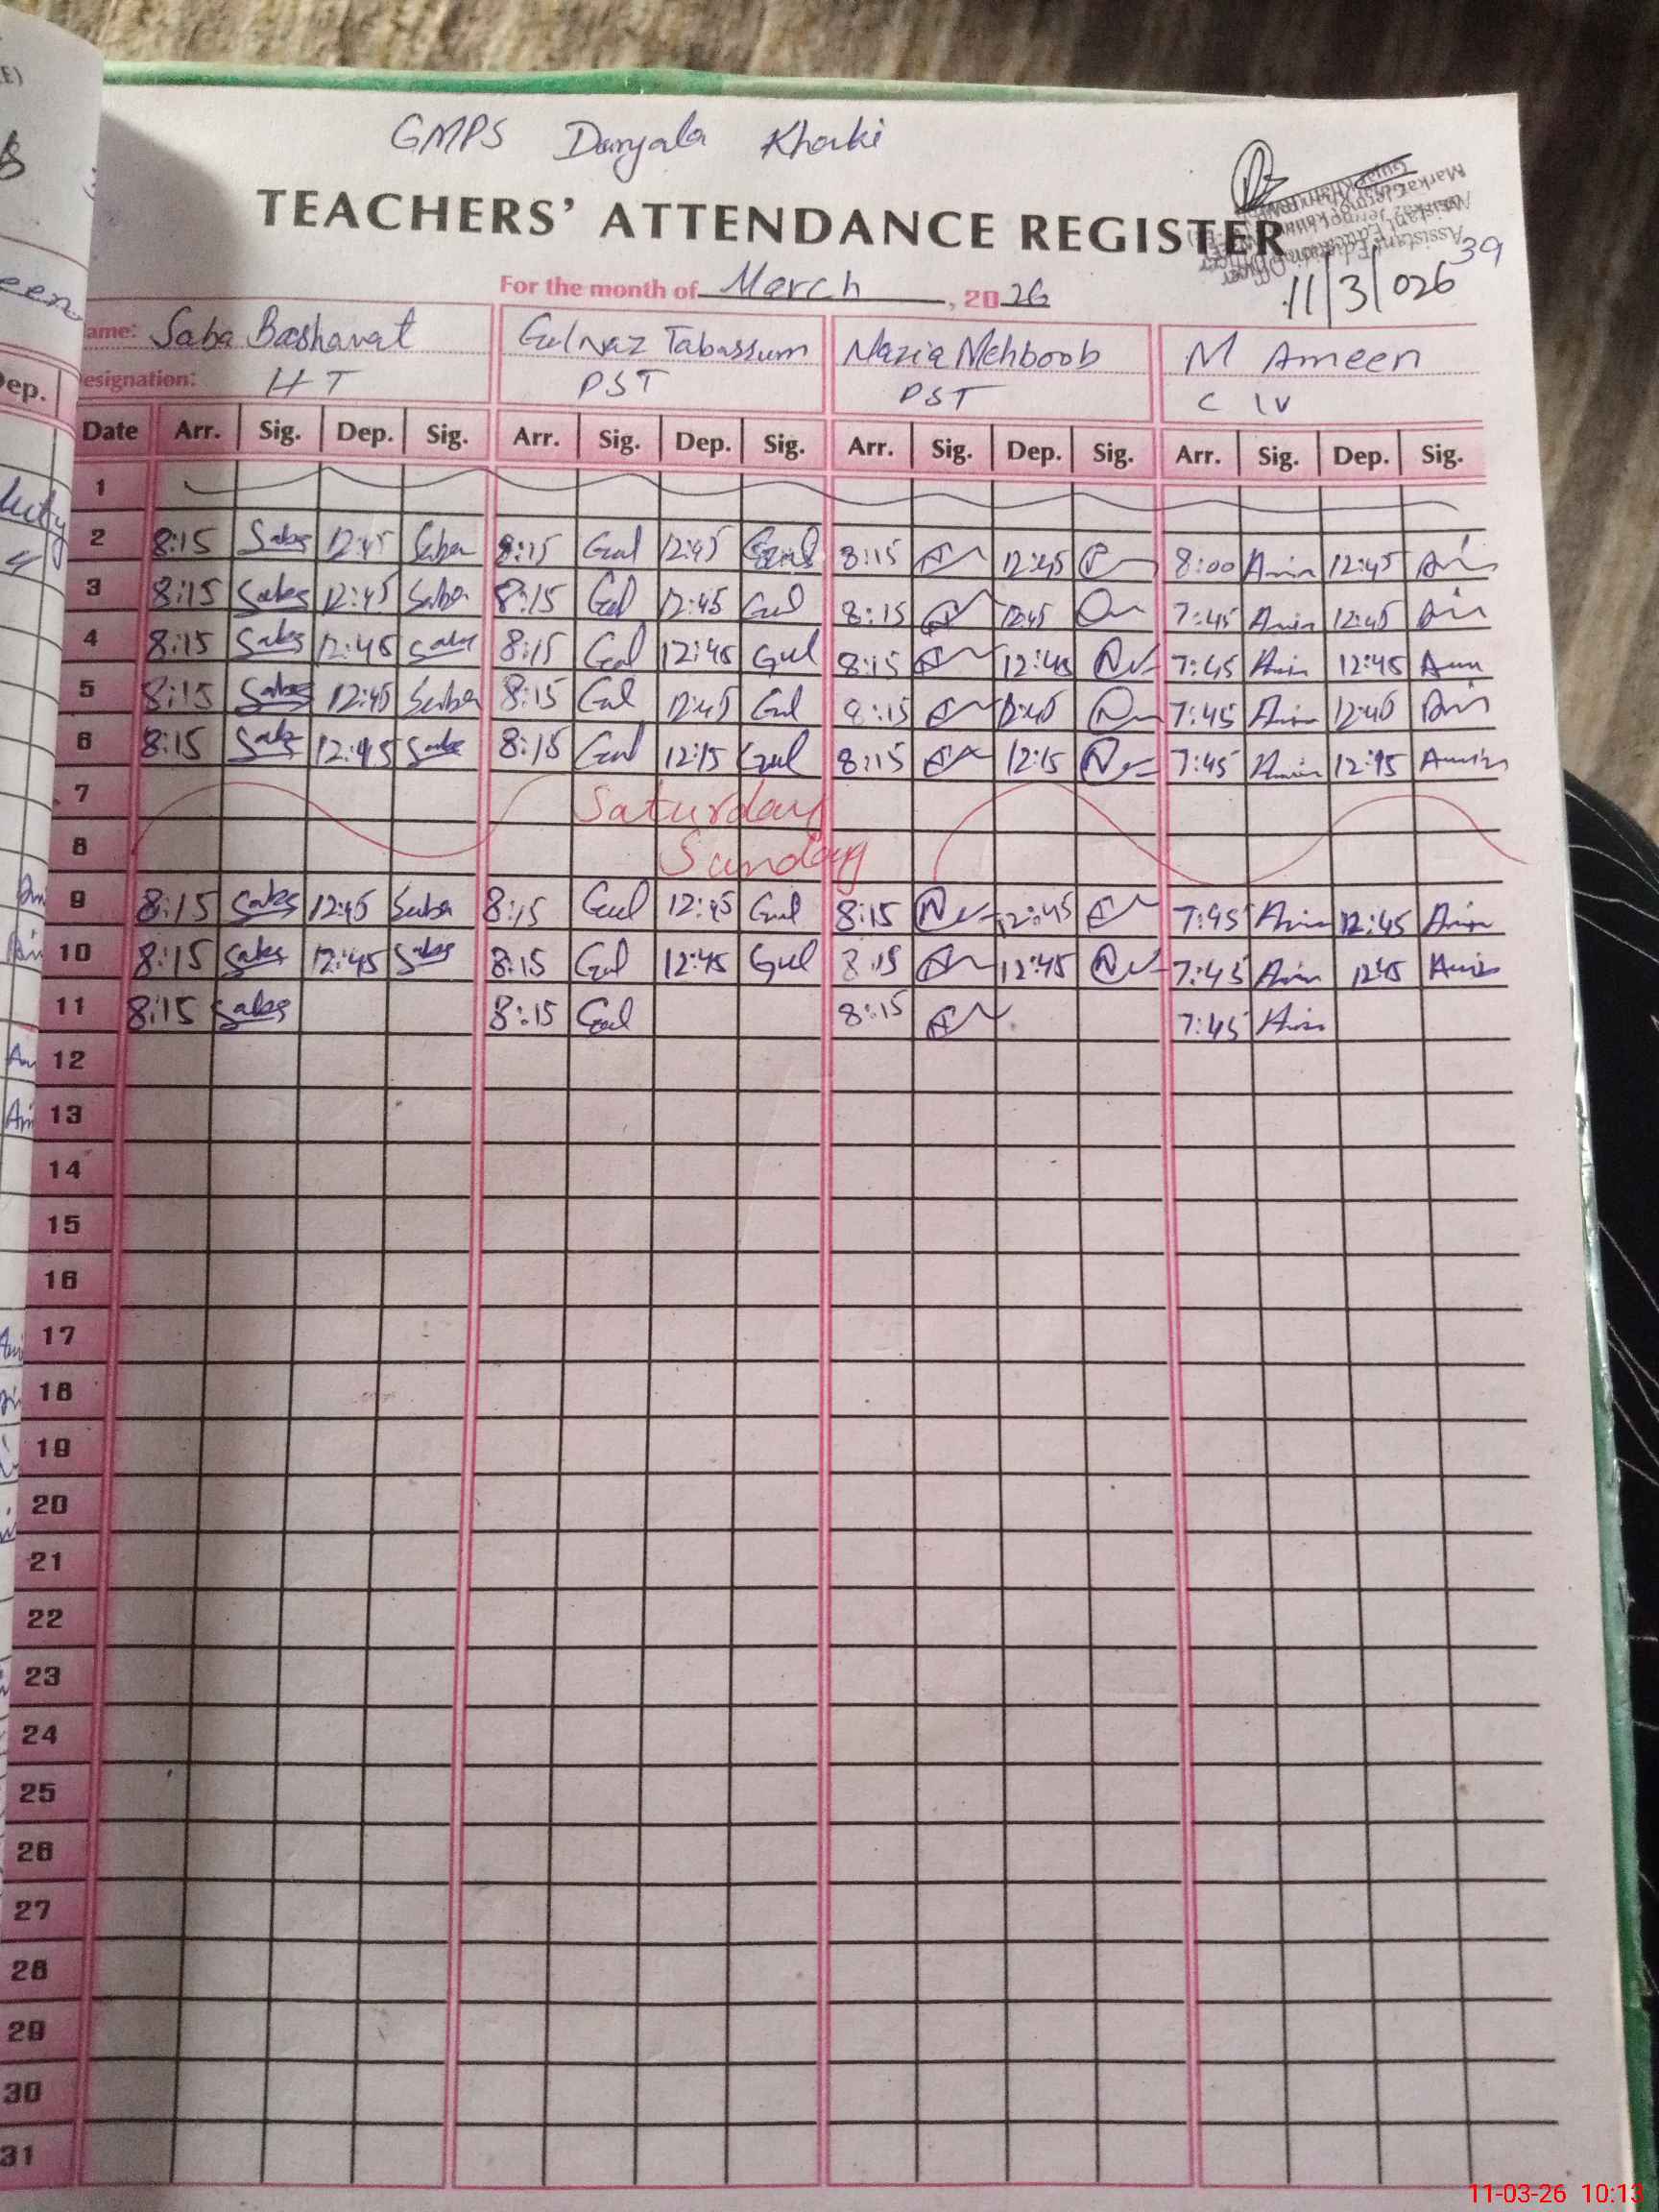 GMPS Daryala Khaki
TEACHERS' ATTENDANCE REGISTER
39
For the month of March, 2026
11/3/026
Name: Saba Basharat Gulnaz Tabassum Nazia Mehboob M Ameen
Designation: H T PST PST C IV
Date Arr. Sig. Dep. Sig. Arr. Sig. Dep. Sig. Arr. Sig. Dep. Sig. Arr. Sig. Dep. Sig.
1
2 8:15 Saba 12:45 Saba 8:15 Gul 12:45 Gul 8:15 12:45 8:00 Amin 12:45
3 8:15 Saba 12:45 Saba 8:15 Gul 12:45 Gul 8:15 12:45 7:45 Amin 12:45
4 8:15 Saba 12:45 Saba 8:15 Gul 12:45 Gul 8:15 12:45 7:45 Amin 12:45
5 8:15 Saba 12:45 Saba 8:15 Gul 12:45 Gul 8:15 12:45 7:45 Amin 12:45
6 8:15 Saba 12:45 Saba 8:15 Gul 12:15 Gul 8:15 12:15 7:45 Amin 12:15 Amin
7 Saturday
8 Sunday
9 8:15 Saba 12:45 Saba 8:15 Gul 12:45 Gul 8:15 12:45 7:45 Amin 12:45 Amin
10 8:15 Saba 12:45 Saba 8:15 Gul 12:45 Gul 8:15 12:45 7:45 Amin 12:45 Amin
11 8:15 Saba 8:15 Gul 8:15 7:45 Amin
12
13
14
15
16
17
18
19
20
21
22
23
24
25
26
27
28
29
30
31
11-03-26 10:13